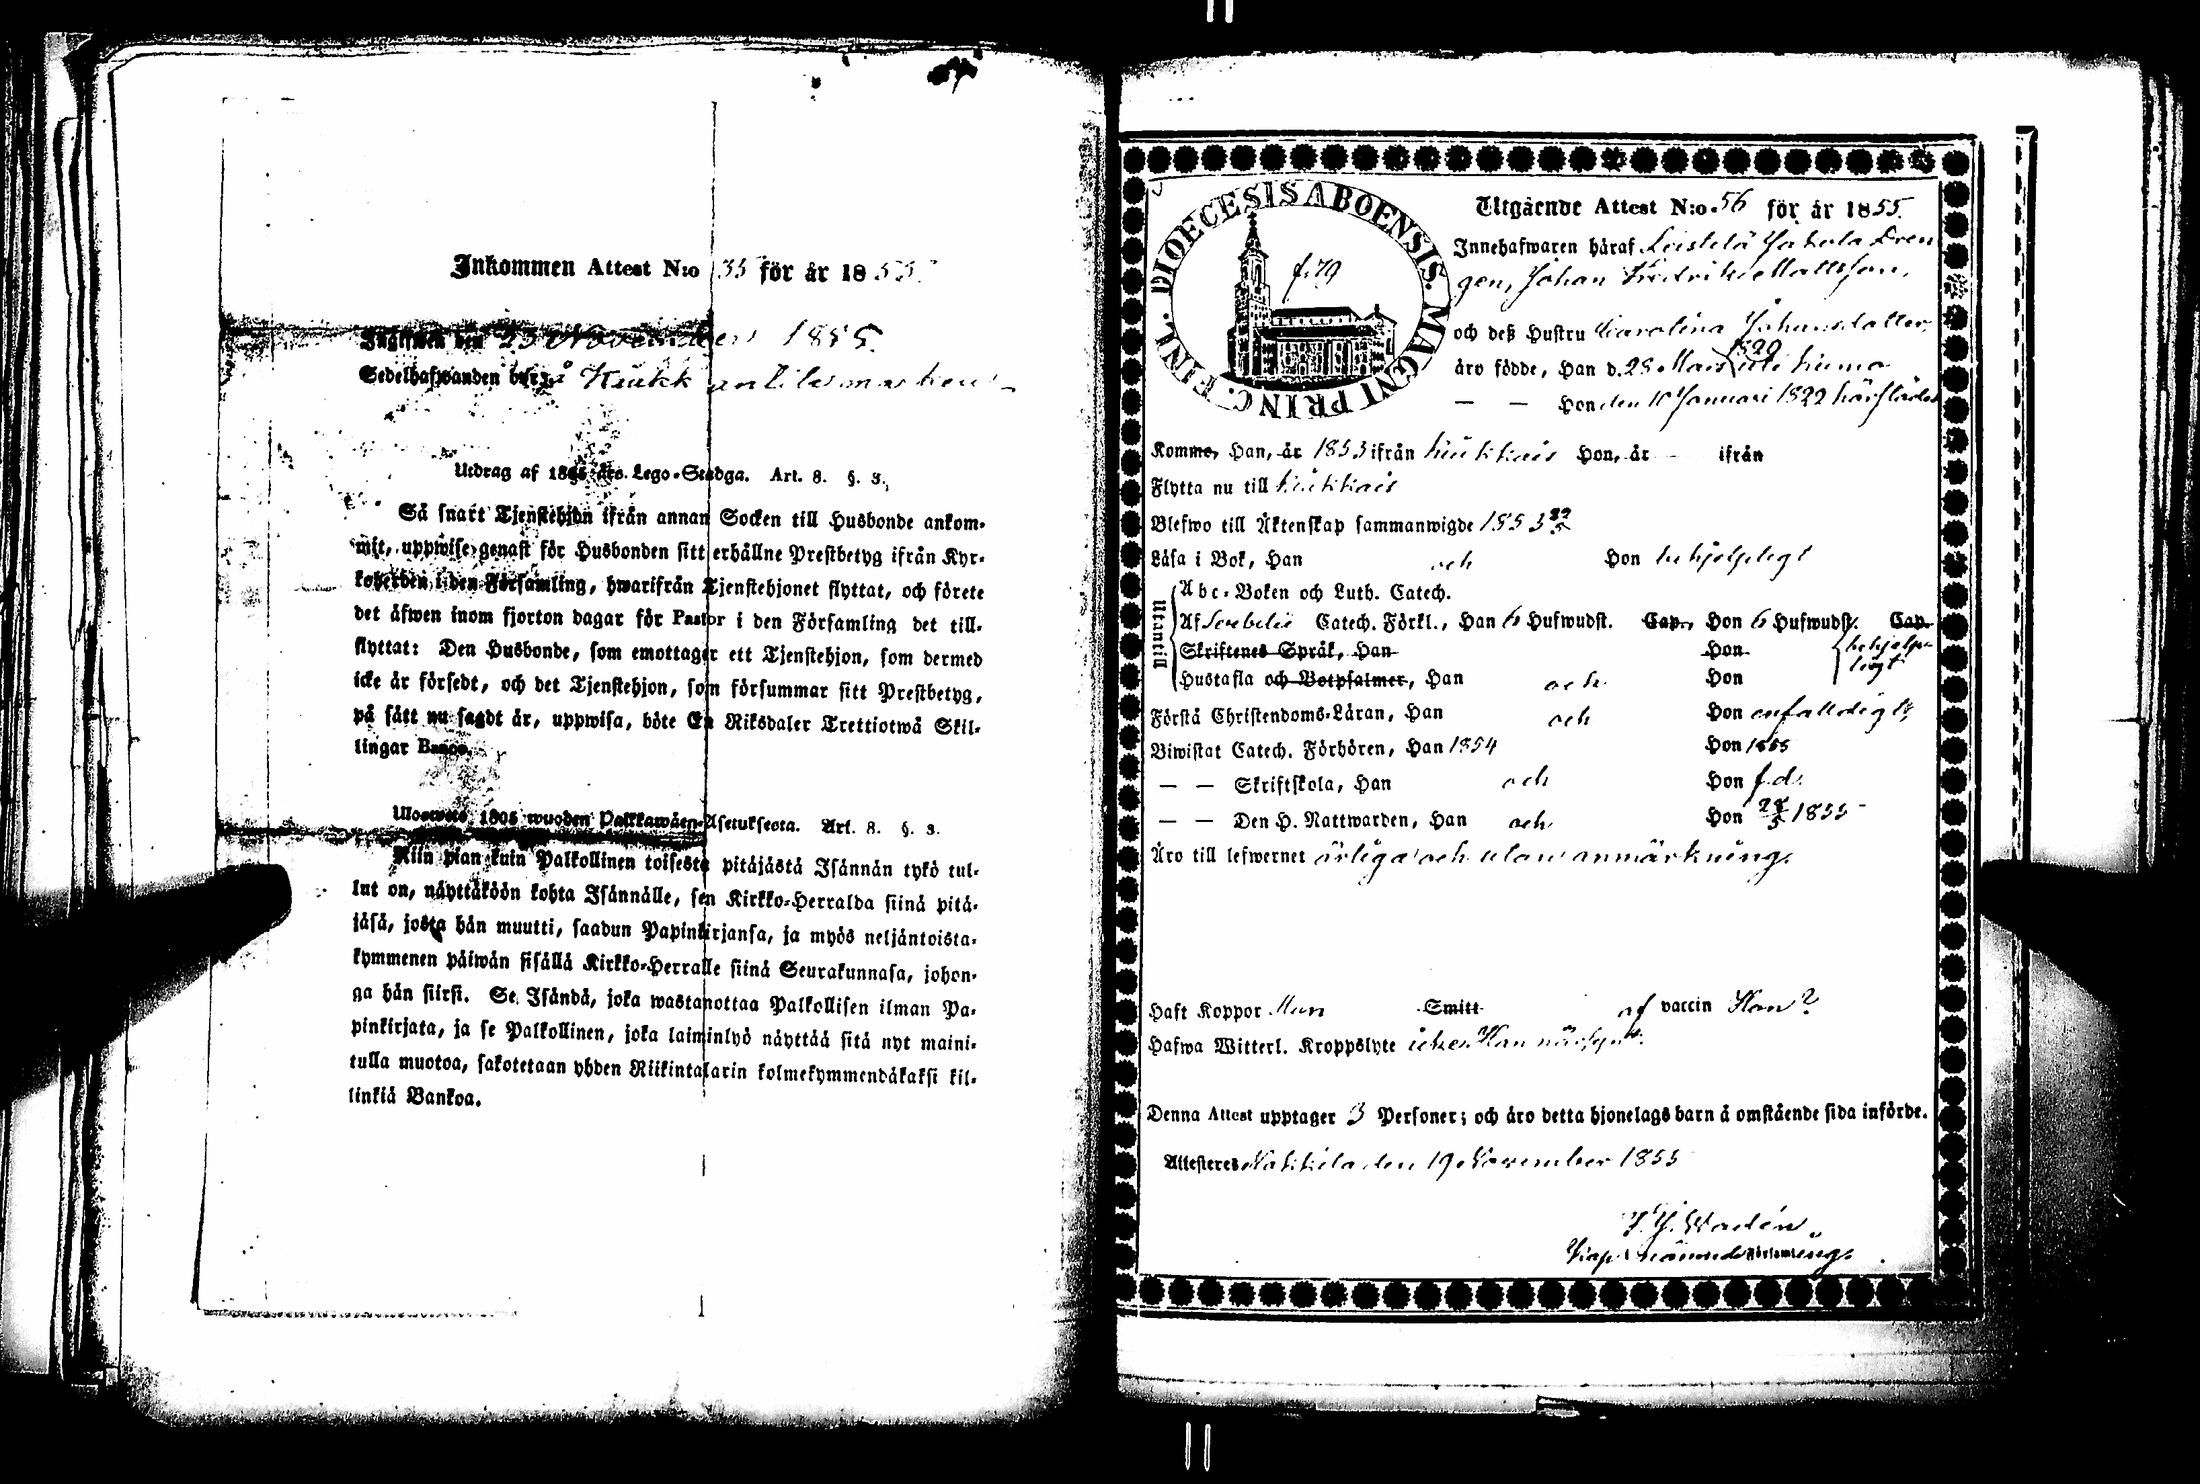 Inkommen Attest N:o 35 för år 1855.
Inlefwen den 23 November 1855.
Sedelhafwanden å
Utdrag af 1805 års Lego-Stadga. Art. 8. §. 3.
Så snart Tjenstehjon ifrån annan Socken till Husbonde ankom-
mit, uppwise genast för Husbonden sitt erhållne Prestbetyg ifrån Kyr-
koherden i den Församling, hwarifrån Tjenstehjonet flyttat, och förete
det äfwen inom fjorton dagar för Pastor i den Församling det till-
flyttat: Den Husbonde, som emottager ett Tjenstehjon, som dermed
icke är försedt, och det Tjenstehjon, som försummar sitt Prestbetyg,
på sätt nu sagdt är, uppwisa, böte En Riksdaler Trettiotwå Skil-
lingar Banco.
Ulosweto 1805 wuoden Palkkawäen-Asetuksesta. Art. 8. §. 3.
Niin pian kuin Palkollinen toisesta pitäjästä Isännän tykö tul-
lut on, näyttäköön kohta Isännälle, sen Kirkko-Herralda siinä pitä-
jäsä, josta hän muutti, saadun Papinkirjansa, ja myös neljäntoista-
kymmenen päiwän sisällä Kirkko-Herralle siinä Seurakunnasa, johon-
ga hän siirsi. Se Isändä, joka wastanottaa Palkollisen ilman Pa-
pinkirjata, ja se Palkollinen, joka laiminlyö näyttää sitä nyt maini-
tulla muotoa, sakotetaan yhden Riikintalarin kolmekymmendäkaksi kil-
linkiä Bankoa.
DIOECESIS ABOENSIS. MAGNI PRINC. FINL.
f. 79
Utgående Attest N:o 56 för år 1855.
Innehafwaren häraf Leistilä Jakola Dren
gen, Johan Fredrik Mattsson,
och deß Hustru Carolina Johansdotter,
1820
äro födde, Han d. 28 Mars
— — Hon den 10 Januari 1822 härstädes
Komme, Han, år 1853 ifrån Kiukkais Hon, år — ifrån
Flytta nu till Kiukkais
Blefwo till Äktenskap sammanwigde 1853
Läsa i Bok, Han och Hon behjelpligt
Utantill
Abc-Boken och Luth. Catech.
Af Svebelii Catech. Förkl., Han 6 Hufwudst. Cap., Hon 6 Hufwudst. Cap.
Skriftenes Språk, Han Hon behjelp-
ligt
Hustafla och Botpsalmer, Han och Hon
Förstå Christendoms-Läran, Han och Hon enfalldigt,
Biwistat Catech. Förhören, Han 1854 Hon 1855
— — Skriftskola, Han och Hon f.d.
— — Den H. Nattwarden, Han och Hon 28/5 1855
Äro till lefwernet ärliga och utan anmärkning.
Haft Koppor Man Smitt af vaccin Hon?
Hafwa Witterl. Kroppslyte icke. Han närsynt.
Denna Attest upptager 3 Personer; och äro detta hjonelags barn å omstående sida införde.
Attesteres Nakkila den 19 November 1855
Wadén
Kap.